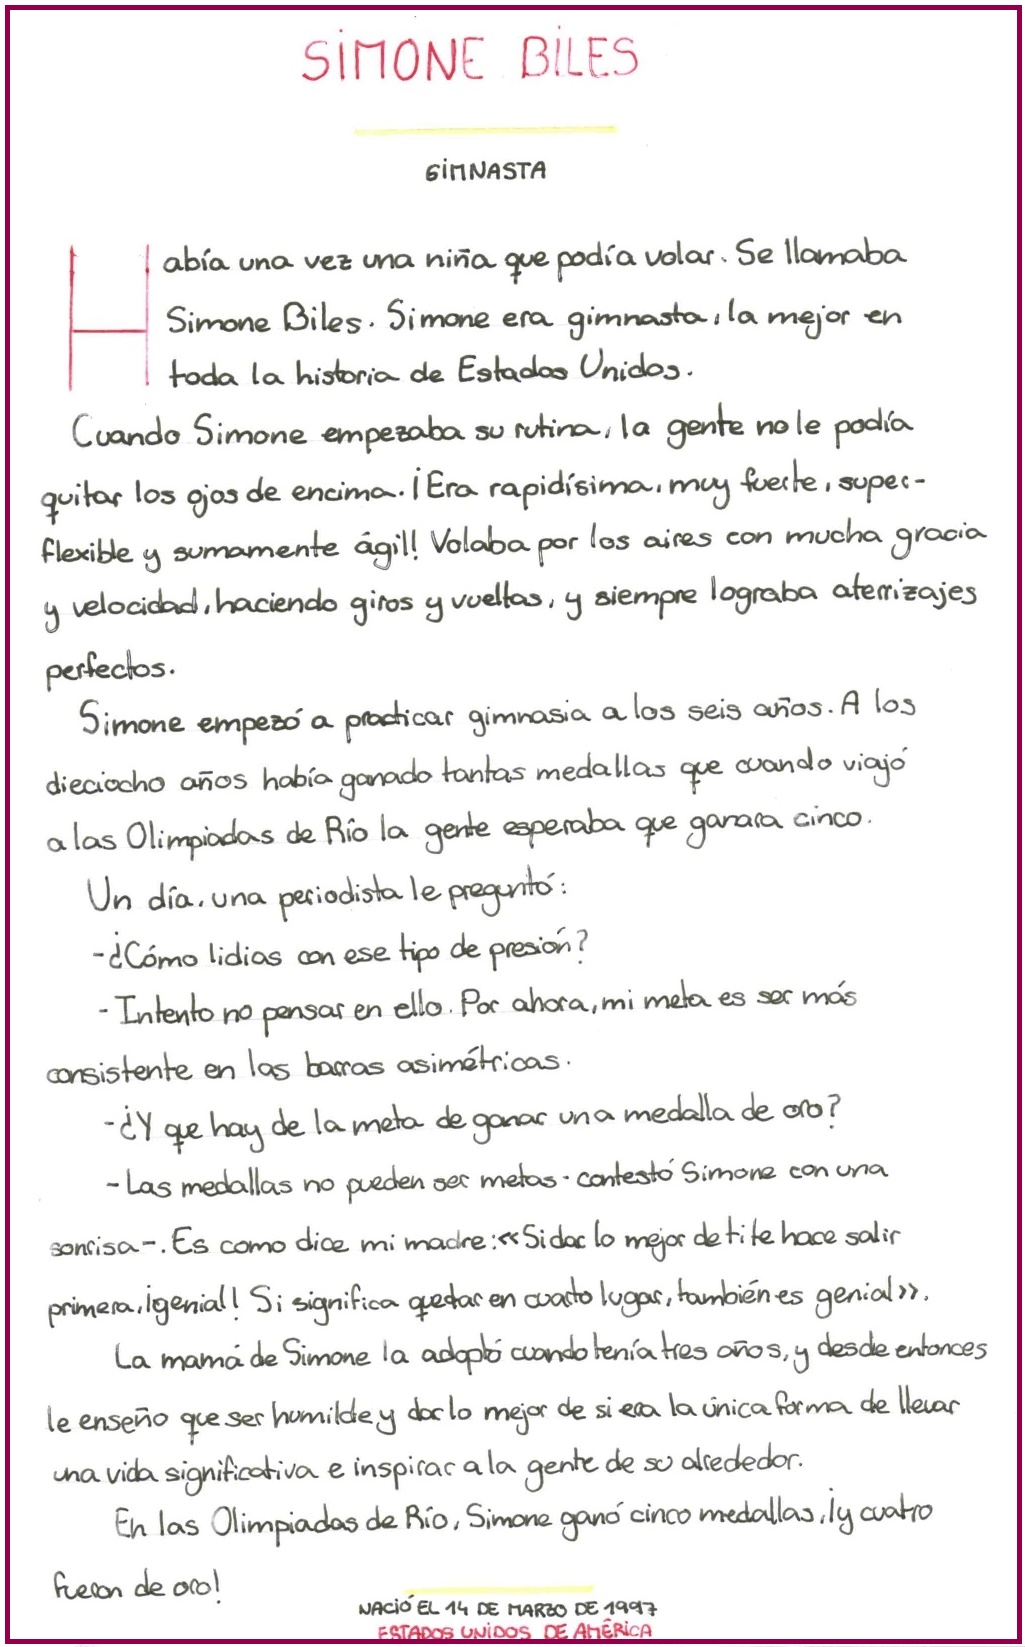 SIMONE BILES
GIMNASTA
Había una vez una niña que podía volar. Se llamaba
Simone Biles. Simone era gimnasta, la mejor en
toda la historia de Estados Unidos.
Cuando Simone empezaba su rutina, la gente no le podía
quitar los ojos de encima. ¡Era rapidísima, muy fuerte, super-
flexible y sumamente ágil! Volaba por los aires con mucha gracia
y velocidad, haciendo giros y vueltas, y siempre lograba aterrizajes
perfectos.
Simone empezó a practicar gimnasia a los seis años. A los
dieciocho años había ganado tantas medallas que cuando viajó
a las Olimpiadas de Río la gente esperaba que ganara cinco.
Un día, una periodista le preguntó:
-¿Cómo lidias con ese tipo de presión?
- Intento no pensar en ello. Por ahora, mi meta es ser más
consistente en las barras asimétricas.
-¿Y que hay de la meta de ganar una medalla de oro?
- Las medallas no pueden ser metas - contestó Simone con una
sonrisa-. Es como dice mi madre: «Si dar lo mejor de ti te hace salir
primera, ¡genial! Si significa quedar en cuarto lugar, también es genial».
La mamá de Simone la adoptó cuando tenía tres años, y desde entonces
le enseño que ser humilde y dar lo mejor de si era la única forma de llevar
una vida significativa e inspirar a la gente de su alrededor.
En las Olimpiadas de Río, Simone ganó cinco medallas, ¡y cuatro
fueron de oro!
NACIÓ EL 14 DE MARZO DE 1997
ESTADOS UNIDOS DE AMÉRICA